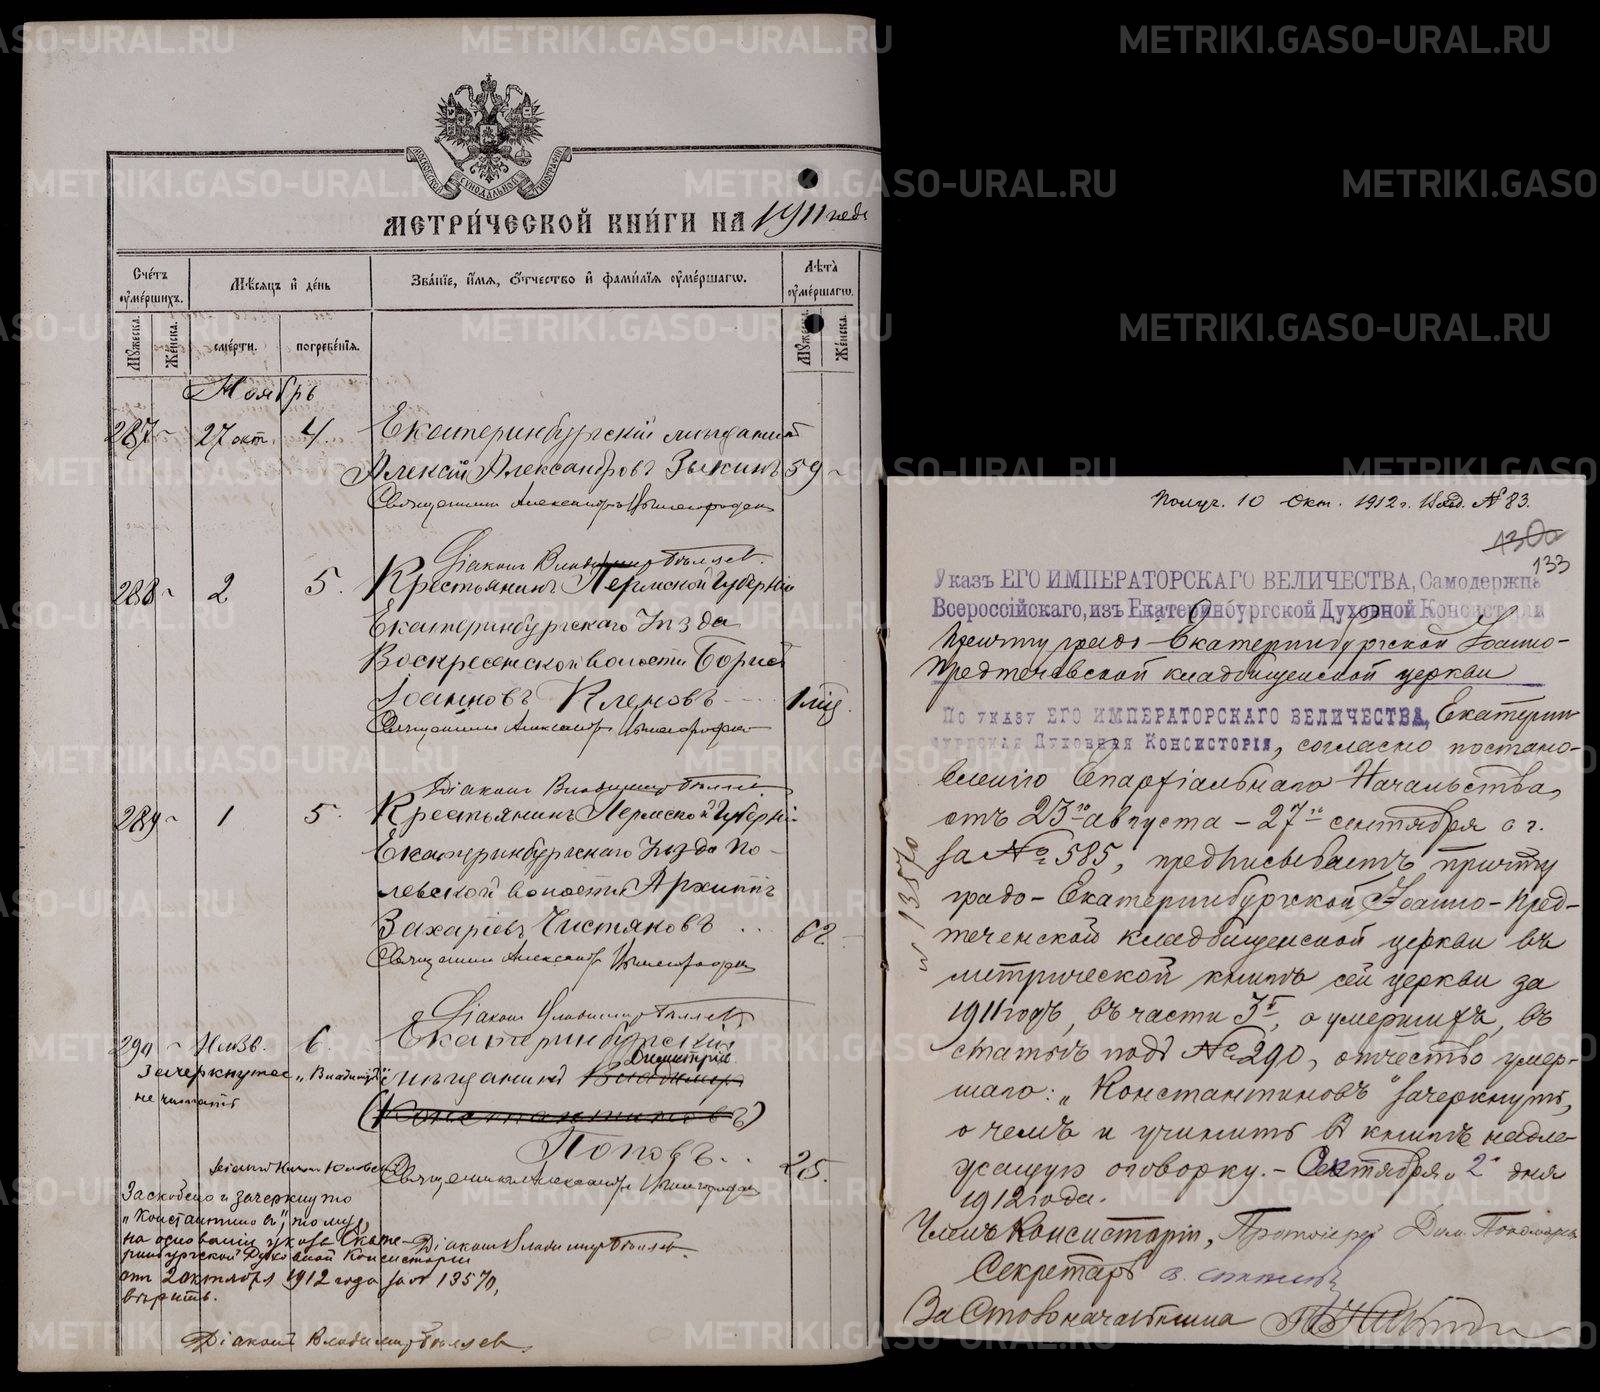 МОСКОВСКОЙ СѴНОДАЛЬНОЙ ТИПОГРАФІИ
МЕТРИ́ЧЕСКОЙ КНИ́ГИ НА 1911 годъ
Сче́тъ ᲂу҆ме́ршихъ.
Мꙋ́жеска.
Же́нска.
Мѣ́сяцъ и҆ де́нь
сме́рти.
погребе́нїѧ.
Зва́нїе, и҆́мѧ, ѻ҆́тчество и҆ фами́лїѧ ᲂу҆ме́ршагѡ.
Лѣ́та̀ ᲂу҆ме́ршагѡ.
Мꙋ́жеска.
Же́нска.
Ноябрь
287 27 окт. 4. Екатеринбургскій мѣщанинъ
Алексій Александровъ Зыкинъ 59
Священникъ Александръ
Діаконъ Владиміръ Бѣляев
288 2 5. Крестьянинъ Пермской Губерніи
Екатеринбургскаго Уѣзда
Воскресенской волости Борисъ
Іоанновъ Кленовъ 1 мѣс.
Священникъ Александръ
Діаконъ Владиміръ Бѣляев
289 1 5 Крестьянинъ Пермской Губерніи
Екатеринбургскаго Уѣзда По-
левской волости Архиппъ
Захаріевъ Чистяковъ 62
Священникъ Александръ
Діаконъ Владиміръ Бѣляев
290 Неизв. 6. Екатеринбургскій
Димитрій
мѣщанинъ Владиміръ
Зачеркнутое „Владиміръ"
не читать
(Константиновъ)
Поповъ 25.
Священникъ Александръ
Заскоблено и зачеркнуто
„Константиновъ", тому,
на основаніи указа Екате-
ринбургской Духовной Консисторіи
отъ 2 октября 1912 года за № 13570,
вѣрить.
Діаконъ Владиміръ Бѣляев
Діаконъ Владиміръ Бѣляев
Получ. 10 Окт. 1912 г. Вход. № 83.
130
133
Указъ ЕГО ИМПЕРАТОРСКАГО ВЕЛИЧЕСТВА, Самодержца
Всероссійскаго, изъ Екатеринбургской Духовной Консисторіи
Причту градо-Екатеринбургской Іоанно-
Предтечевской кладбищенской церкви
По указу ЕГО ИМПЕРАТОРСКАГО ВЕЛИЧЕСТВА, Екатерин-
бургская Духовная Консисторія, согласно постано-
вленію Епархіальнаго Начальства,
отъ 23го августа – 27го сентября с. г.
за № 585, предписываетъ причту
градо-Екатеринбургской Іоанно-Пред-
теченской кладбищенской церкви въ
метрической книгѣ сей церкви за
1911 годъ, въ части 3й, о умершихъ, въ
статьѣ подъ № 290, отчество умер-
шаго: „Константиновъ" зачеркнуть,
о чемъ и учинить въ книгѣ надле-
жащую оговорку. – Октября „2" дня
1912 года.
№ 13570
Членъ Консисторіи, Протоіерей
Секретарь
За Столоначальника
METRIKI.GASO-URAL.RU